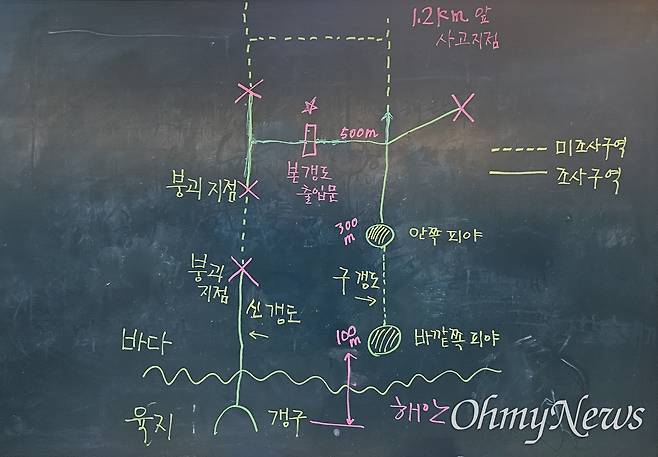 1.2km 앞
사고지점
500m
본갱도
출입문
미조사구역
조사구역
붕괴 지점
300
m
안쪽 피야
붕괴
지점
구 갱도
신 갱도
100
m
바깥쪽 피야
바다
육지
갱구
해안
OhmyNews